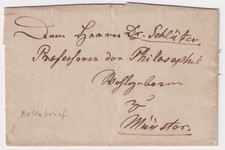 Dem Herrn Dr. Schlüter,
Professor der Philosophie
Wohlgeboren
zu
Münster.
Botenbrief